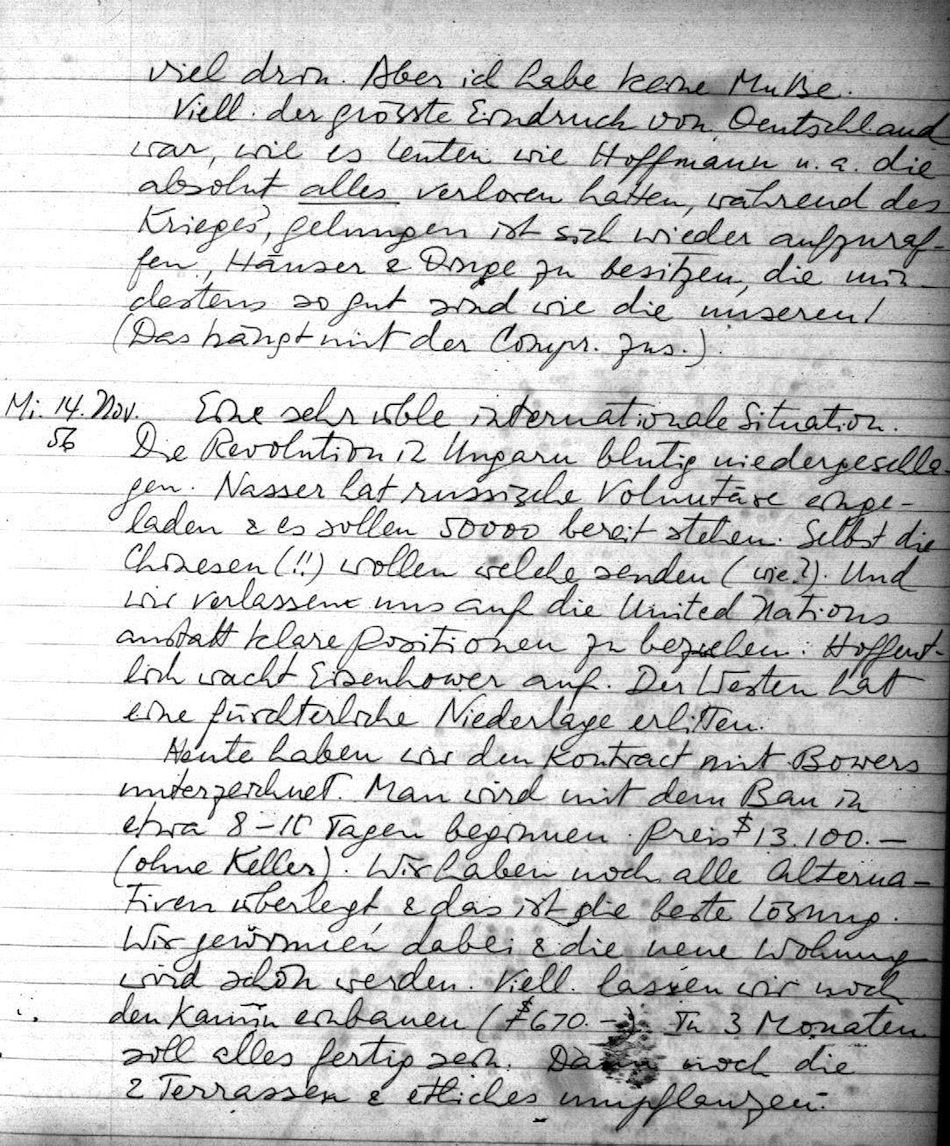 viel drin. Aber ich habe keine Muße.
Viell. der grösste Eindruck von Deutschland
war, wie es Leuten wie Hoffmann u. a. die
absolut alles verloren hatten, während des
Krieges, gelungen ist sich wieder aufzuraf-
fen, Häuser & Dinge zu besitzen, die min-
destens so gut sind wie die unseren!
(Das hängt mit der Compr. zus.)
Mi. 14. Nov. Eine sehr üble internationale Situation.
56 Die Revolution in Ungarn blutig niedergeschla-
gen. Nasser hat russische Voluntäre einge-
laden & es sollen 50000 bereit stehen. Selbst die
Chinesen (!!) wollen welche senden (wie?). Und
wir verlassen uns auf die United Nations
anstatt klare Positionen zu beziehen. Hoffent-
lich wacht Eisenhower auf. Der Westen hat
eine fürchterliche Niederlage erlitten.
Heute haben wir den Kontract mit Bowers
unterzeichnet. Man wird mit dem Bau in
etwa 8-10 Tagen beginnen. Preis $ 13.100.—
(ohne Keller). Wir haben noch alle Alterna-
tiven überlegt, & das ist die beste Lösung.
Wir gewinnen dabei & die neue Wohnung
wird schön werden. Viell. lassen wir noch
den Kamin einbauen ($ 670.—). In 3 Monaten
soll alles fertig sein. Dann noch die
2 Terrassen & etliches umpflanzen.